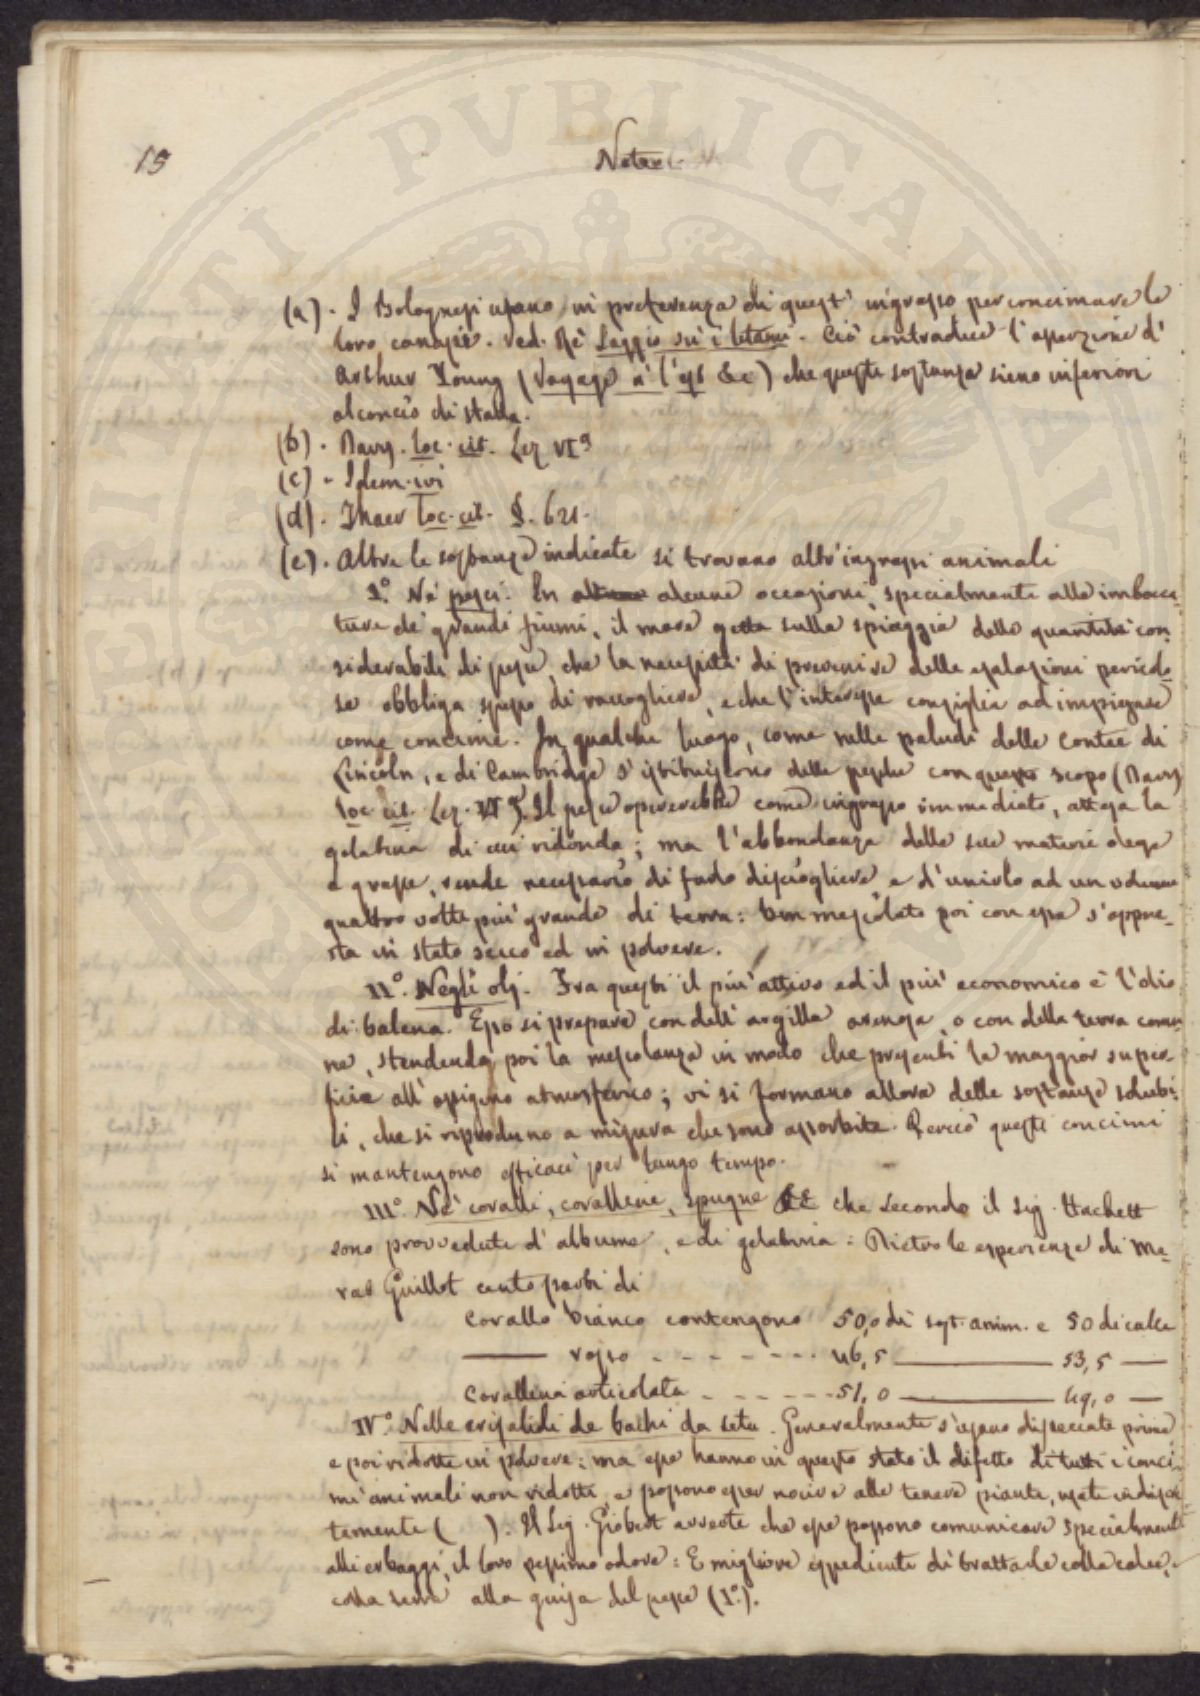 15
Note
(a). I Bolognesi usano in preferenza di quest' ingrasso per concimare le
loro canape. Ved. Rè Saggio su i letami. Ciò contradice l'asserzione d'
Arthur Young (Voyage à l' &c) che queste sostanze sieno inferiori
al concio di stalla.
(b). Davy. loc. cit. Lez VIª
(c). Idem. ivi
(d). Thaer loc. cit. §. 621.
(e). Altre le sostanze indicate si trovano altr'ingrassi animali
I.º Ne' pesci. In alcune occasioni, specialmente alle imbocca-
ture de' grandi fiumi, il mare getta sulla spiaggia delle quantità con-
siderabili di pesce, che la necessità di prevenire delle esalazioni pericolo-
se obbliga spesso di raccogliere, e che l'interesse consiglia ad impiegare
come concime. In qualche luogo, come nelle paludi delle Contee di
Lincoln, e di Cambridge s'istituiscono delle pesche con questo scopo (Davy
loc. cit. Lez. VIª). Il pesce opererebbe come ingrasso immediato, attesa la
gelatina di cui ridonda; ma l'abbondanza delle sue materie oleose
e grasse, rende necessario di farlo disciogliere, e d'unirlo ad un volume
quattro volte più grande di terra: ben mescolato poi con essa s'appre-
sta in stato secco ed in polvere.
II.º Negli olj. Fra questi il più attivo ed il più economico è l'olio
di balena. Esso si prepara con dell'argilla arenosa, o con della terra comu-
ne, stendendo poi la mescolanza in modo che presenti la maggior super-
ficie all'ossigeno atmosferico; vi si formano allora delle sostanze solubi-
li, che si riproducono a misura che sono assorbite. Perciò questi concimi
si mantengono efficaci per lungo tempo.
III.º Ne' coralli, coralline, spugne &c che secondo il sig. Hachett
sono provvedute d'albume, e di gelatina: Dietro le esperienze di Me-
rat Guillot cento parti di
Corallo bianco contengono 50,0 di sost. anim. e 50 di calce
—— rosso - - - - - - - 46,5 —— 53,5 —
Corallina articolata - - - - - - 51,0 —— 49,0 —
IV.º Nelle crisalidi de bachi da seta. Generalmente s'usano disseccate prima
e poi ridotte in polvere: ma esse hanno in questo stato il difetto di tutti i conci-
mi animali non ridotti, e possono esser nocive alle tenere piante, usate indiscre-
tamente ( ). Il Sig. Giobert avverte che esse possono comunicare specialmente
alli erbaggi, il loro pessimo odore: È migliore espediente di trattarle colla calce, e
colla terra alla guisa del pesce (I.º).